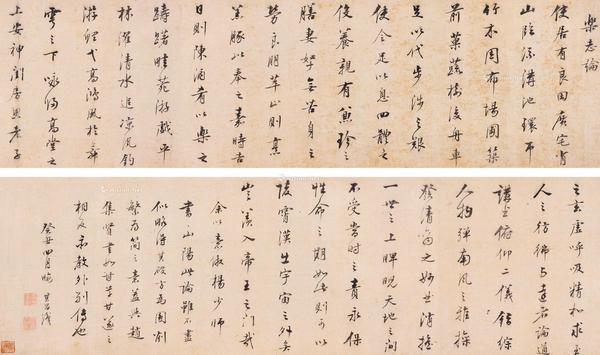 樂志論
使居有良田廣宅背
山臨流溝池環帀
竹木周布場圃築
前菓蔬樹後舟車
足以代步涉之艱
使令足以息四體之
役養親有兼珍之
膳妻孥無苦身之
勞良朋萃止則烹
羔豚以奉之嘉時吉
日則陳酒肴以樂之
躊躇畦苑游戲平
林濯清水追凉風釣
游鯉弋高鴻風於舞
雩之下咏歸高堂之
上安神閨房思老子
之玄虛呼吸精和求至
人之彷彿與達者論道
講書俯仰二儀錯綜
人物彈南風之雅操
發清商之妙曲逍搖
一世之上睥睨天地之間
不受當時之責永保
性命之期如此則可以
陵霄漢出宇宙之外矣
豈羨入帝王之門哉
余以意倣楊少師
書山陽此論雖不盡
似略得其破方為圓削
繁為簡之意蓋與趙
集賢書如甘草甘遂之
相反亦教外別傳也
癸丑四月晦 其昌識